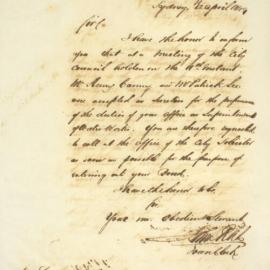 Sydney, April
Sir,
I have the honor to inform
you that at a Meeting of the City
Council holden on the instant
Mr and Mr Patrick
were accepted as Sureties for the performance
of the duties of your office as Superintendent
of Water Works. You are therefore requested
to call at the Office of the City Solicitor
as soon as possible for the purpose of
entering into your Bond.
I have the honor to be
Sir
Your Obedient Servant
Town Clerk